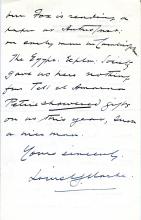 Mr. Fox is sending a
paper on Antropmes.
on early man in Cambridge
The Egypt. Explor. Society
gave us here nothing
from Tell el Amarna
Petrie showered gifts
on us this year, such
a nice man.
Yours sincerely,
Louis C. G. Clarke